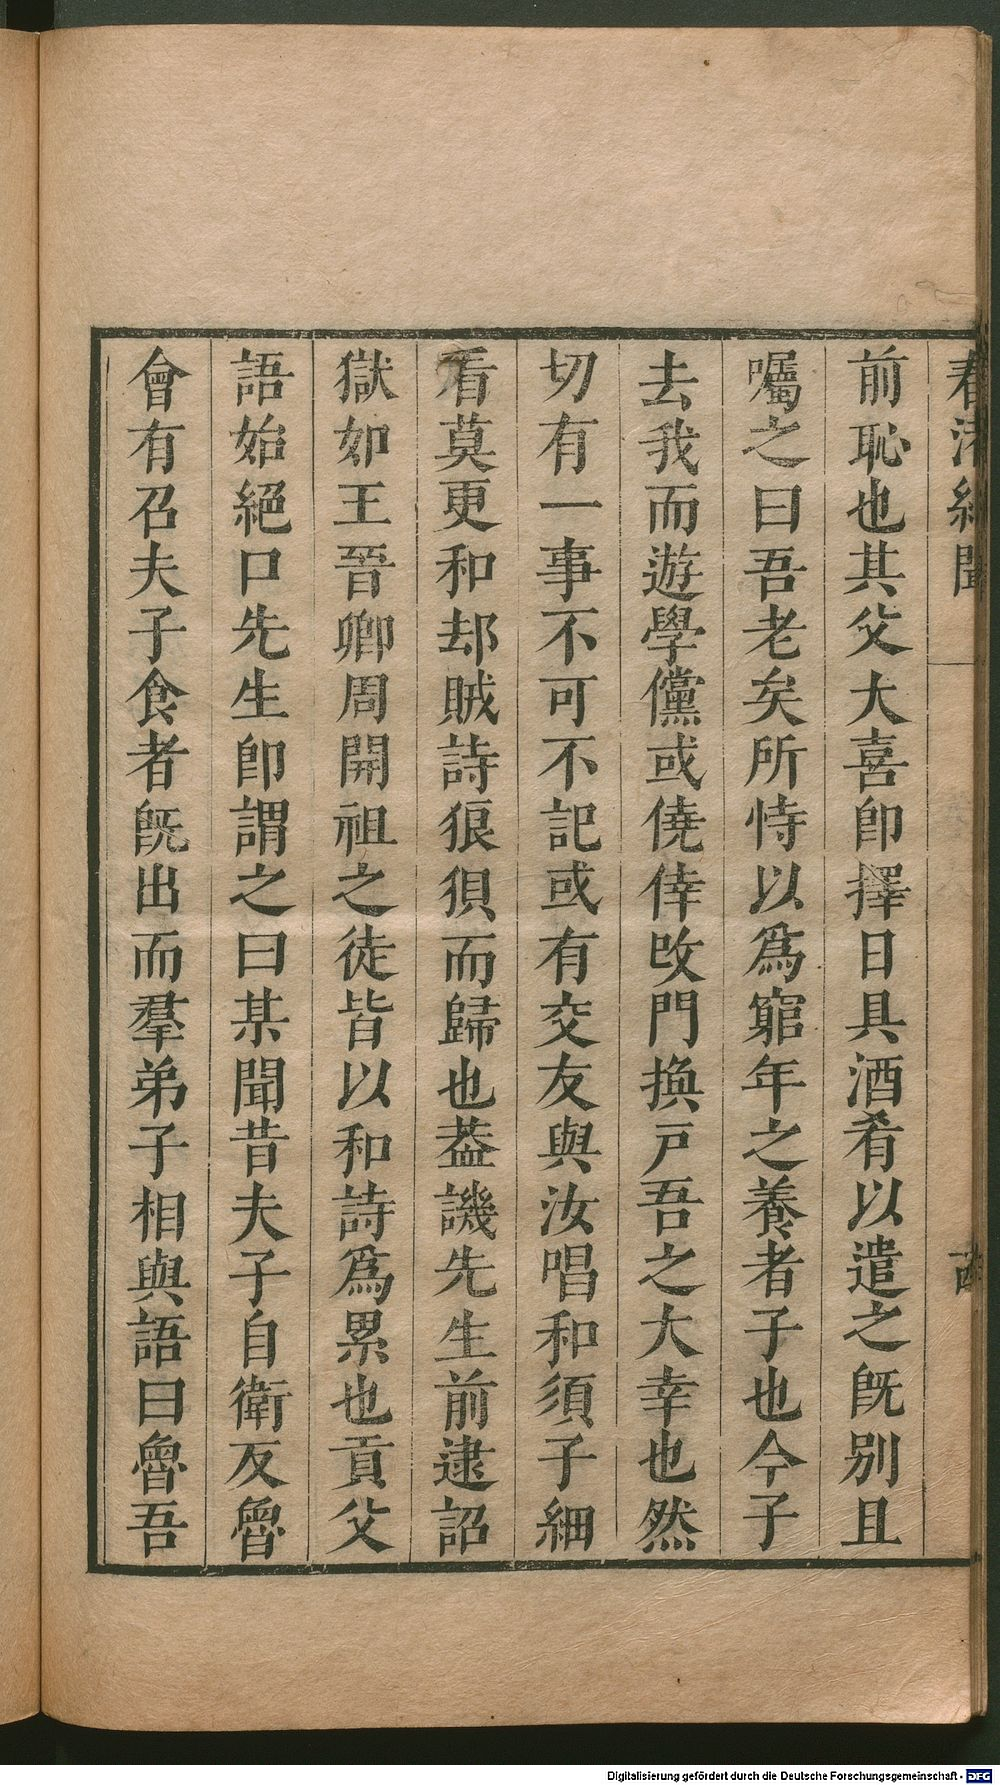 春渚紀聞
前恥也其父大喜卽擇日具酒肴以遣之旣別且
囑之曰吾老矣所恃以爲窮年之養者子也今子
去我而遊學儻或僥倖改門換戸吾之大幸也然
切有一事不可不記或有交友與汝唱和須子細
看莫更和却賊詩狼狽而歸也葢譏先生前逮詔
獄如王晉卿周開祖之徒皆以和詩爲累也貢父
語始絕口先生卽謂之曰某聞昔夫子自衛反魯
會有召夫子食者旣出而羣弟子相與語曰魯吾
Digitalisierung gefördert durch die Deutsche Forschungsgemeinschaft - DFG